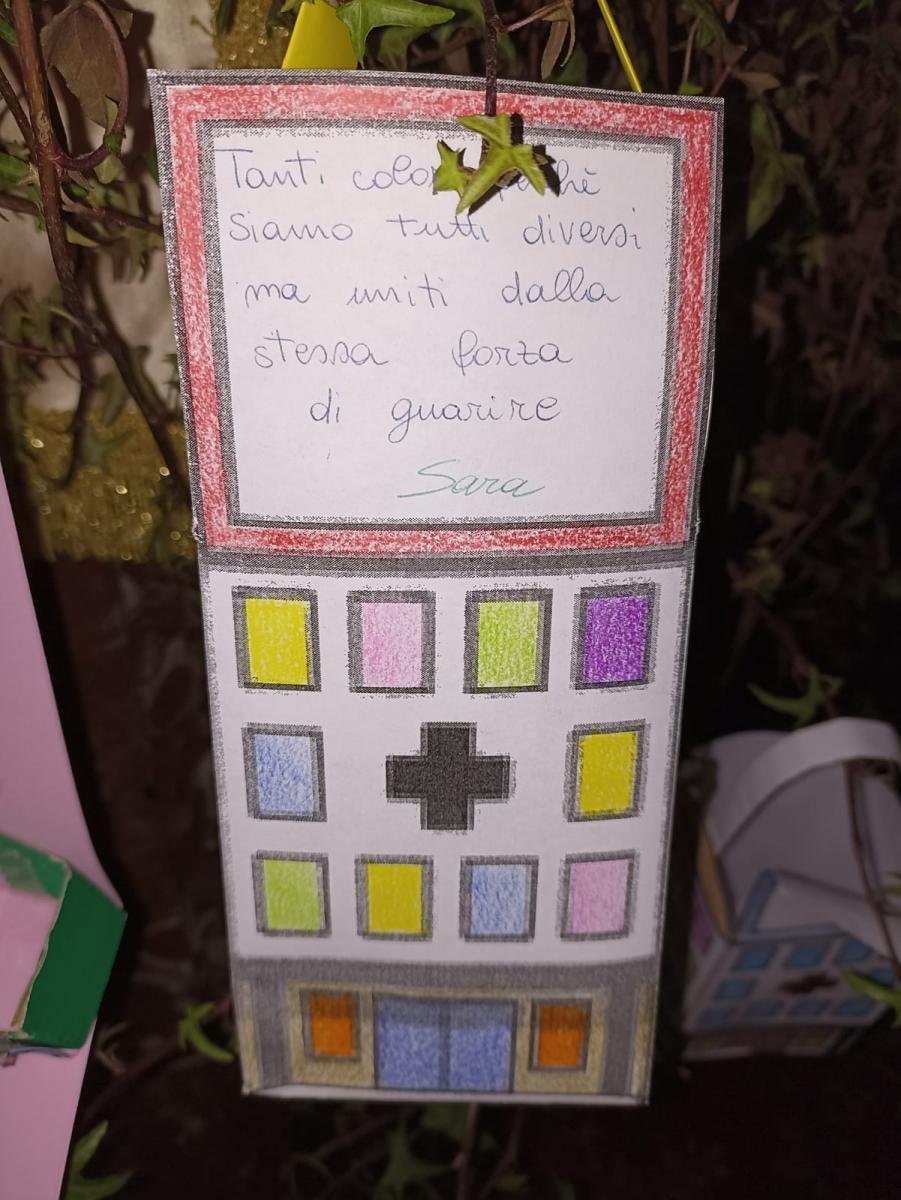 Tanti colori perchè
siamo tutti diversi
ma uniti dalla
stessa forza
di guarire
Sara